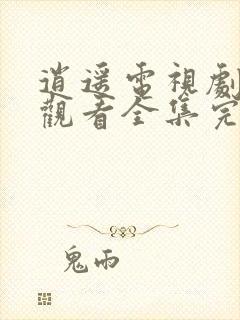 逍遥電視劇
觀看全集完
鬼雨